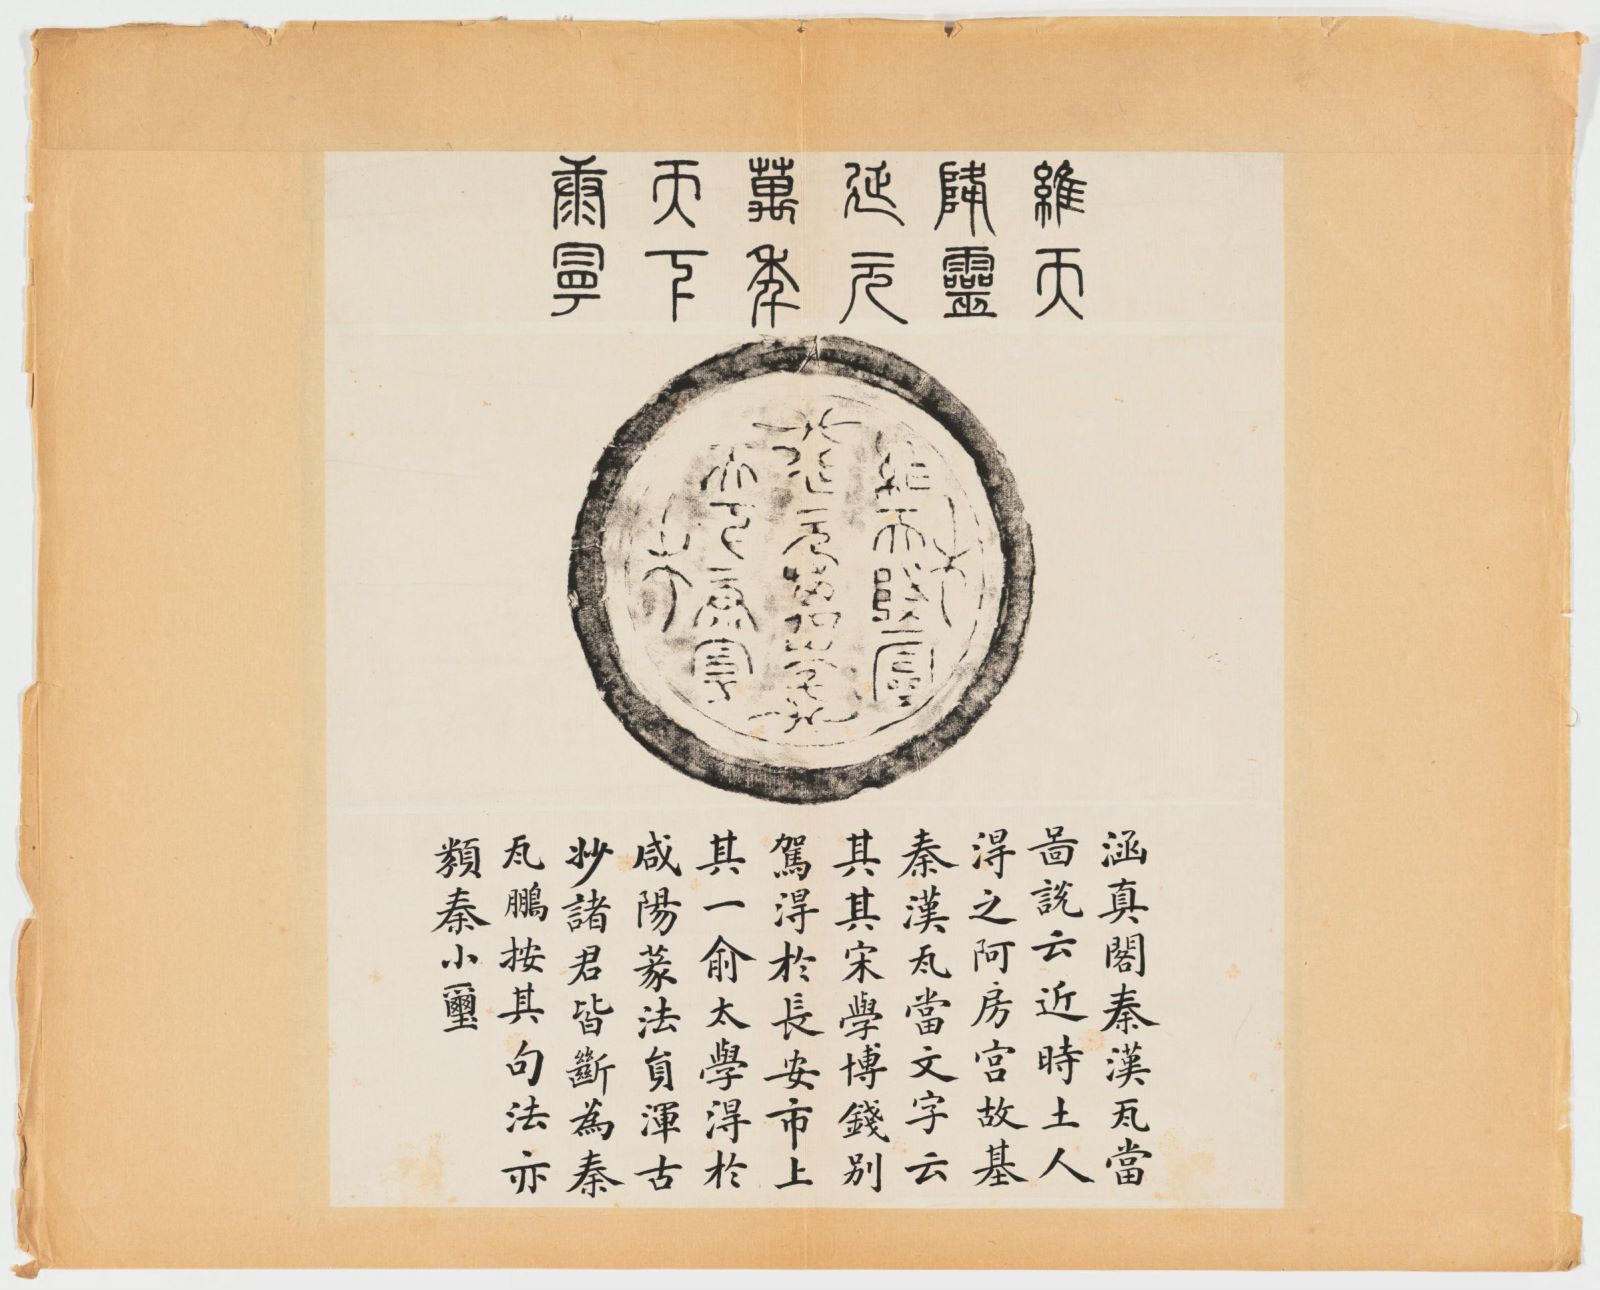 維天
降靈
延元
萬年
天下
康寧
維天降靈
延元萬年
天下康寧
涵真閣秦漢瓦當
啚說云近時土人
得之阿房宮故基
秦漢瓦當文字云
其其宋學博錢別
駕得於長安市上
其一俞太學得於
咸陽篆法貟渾古
玅諸君皆斷為秦
瓦鵬按其句法亦
類秦小璽